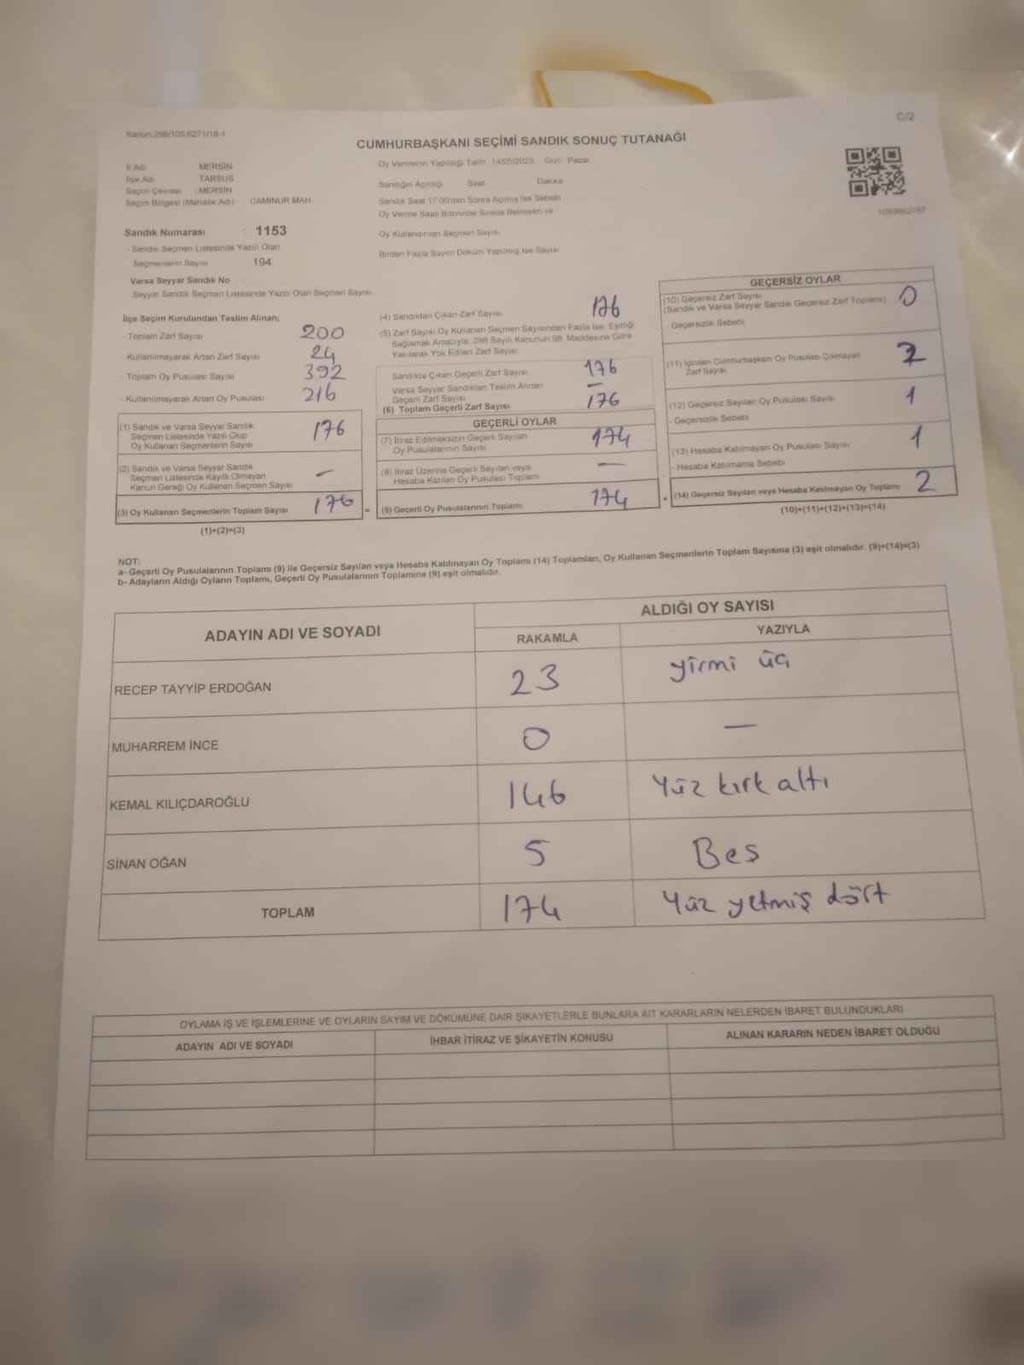 C/2
CUMHURBAŞKANI SEÇİMİ SANDIK SONUÇ TUTANAĞI
İl Adı MERSİN
İlçe Adı TARSUS
Seçim Çevresi MERSİN
Seçim Bölgesi (Mahalle Adı) CAMİNUR MAH.
Sandık Numarası 1153
Sandık Seçmen Listesinde Yazılı Olan
Seçmenlerin Sayısı 194
Varsa Seyyar Sandık No
Seyyar Sandık Seçmen Listesinde Yazılı Olan Seçmen Sayısı
Oy Vermenin Yapıldığı Tarih : 14/05/2023 Gün: Pazar
Sandığın Açıldığı Saat Dakika
Sandık Saat 17.00'den Sonra Açılmış İse Sebebi
Oy Verme Saati Bitiminde Sırada Bekleyen ve
Oy Kullandırılan Seçmen Sayısı
Birden Fazla Sayım Döküm Yapılmış İse Sayısı
İlçe Seçim Kurulundan Teslim Alınan;
- Toplam Zarf Sayısı 200
- Kullanılmayarak Artan Zarf Sayısı 24
- Toplam Oy Pusulası Sayısı 392
- Kullanılmayarak Artan Oy Pusulası 216
(1) Sandık ve Varsa Seyyar Sandık
Seçmen Listesinde Yazılı Olup
Oy Kullanan Seçmenlerin Sayısı 176
(2) Sandık ve Varsa Seyyar Sandık
Seçmen Listesinde Kayıtlı Olmayan
Kanun Gereği Oy Kullanan Seçmen Sayısı —
(3) Oy Kullanan Seçmenlerin Toplam Sayısı 176
(1)+(2)=(3)
(4) Sandıktan Çıkan Zarf Sayısı 176
(5) Zarf Sayısı Oy Kullanan Seçmen Sayısından Fazla İse, Eşitliği
Sağlamak Amacıyla, 298 Sayılı Kanunun 98. Maddesine Göre
Yakılarak Yok Edilen Zarf Sayısı
Sandıkta Çıkan Geçerli Zarf Sayısı 176
Varsa Seyyar Sandıktan Teslim Alınan
Geçerli Zarf Sayısı —
(6) Toplam Geçerli Zarf Sayısı 176
GEÇERLİ OYLAR
(7) İtiraz Edilmeksizin Geçerli Sayılan
Oy Pusulalarının Sayısı 174
(8) İtiraz Üzerine Geçerli Sayılan veya
Hesaba Katılan Oy Pusulası Toplamı —
(9) Geçerli Oy Pusulalarının Toplamı 174
GEÇERSİZ OYLAR
(10) Geçersiz Zarf Sayısı
(Sandık ve Varsa Seyyar Sandık Geçersiz Zarf Toplamı) 0
- Geçersizlik Sebebi
(11) İçinden Cumhurbaşkanı Oy Pusulası Çıkmayan
Zarf Sayısı
(12) Geçersiz Sayılan Oy Pusulası Sayısı 1
- Geçersizlik Sebebi
(13) Hesaba Katılmayan Oy Pusulası Sayısı 1
- Hesaba Katılmama Sebebi
(14) Geçersiz Sayılan veya Hesaba Katılmayan Oy Toplamı 2
(10)+(11)+(12)+(13)=(14)
NOT:
a- Geçerli Oy Pusulalarının Toplamı (9) ile Geçersiz Sayılan veya Hesaba Katılmayan Oy Toplamı (14) Toplamları, Oy Kullanan Seçmenlerin Toplam Sayısına (3) eşit olmalıdır. (9)+(14)=(3)
b- Adayların Aldığı Oyların Toplamı, Geçerli Oy Pusulalarının Toplamına (9) eşit olmalıdır.
ADAYIN ADI VE SOYADI ALDIĞI OY SAYISI
RAKAMLA YAZIYLA
RECEP TAYYİP ERDOĞAN 23 yirmi üç
MUHARREM İNCE 0 —
KEMAL KILIÇDAROĞLU 146 Yüz kırk altı
SİNAN OĞAN 5 Bes
TOPLAM 174 Yüz yetmiş dört
OYLAMA İŞ VE İŞLEMLERİNE VE OYLARIN SAYIM VE DÖKÜMÜNE DAİR ŞİKAYETLERLE BUNLARA AİT KARARLARIN NELERDEN İBARET BULUNDUKLARI
ADAYIN ADI VE SOYADI İHBAR İTİRAZ VE ŞİKAYETİN KONUSU ALINAN KARARIN NEDEN İBARET OLDUĞU